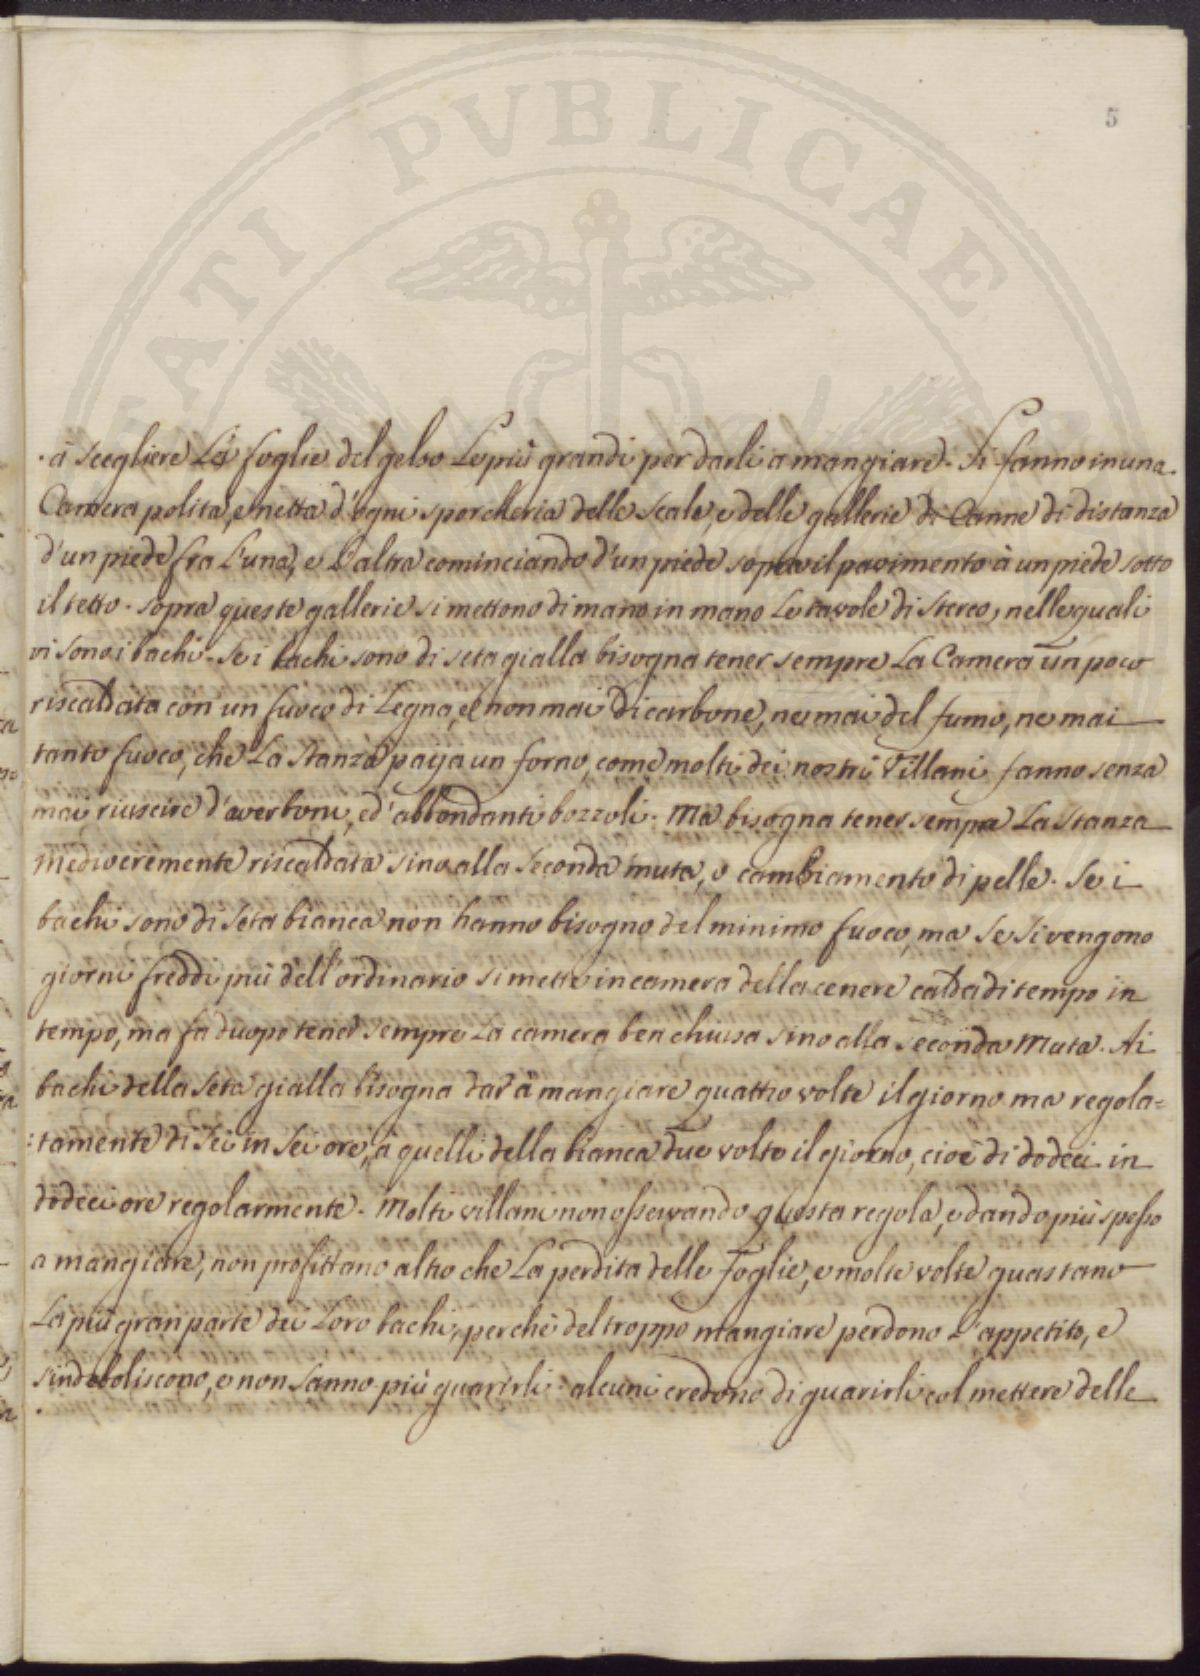 5
à scegliere Le foglie del gelso Le più grandi per darli a mangiare. Si fanno in una
Camera polita, e netta d'ogni sporcheria delle Scale, e delle gallerie di Canne di distanza
d'un piede fra L'una, e L'altra cominciando d'un piede sopra il pavimento à un piede sotto
il tetto. sopra queste gallerie si mettono di mano in mano Le tavole di Sterco, nelle quali
vi sono i bachi. Se i bachi sono di seta gialla bisogna tener sempre La Camera un poco
riscaldata con un fuoco di Legna, e non mai di carbone, ne mai del fumo, ne mai
tanto fuoco, che La Stanza paija un forno, come molti dei nostri Villani fanno senza
mai riuscire d'aver boni, ed'abbondanti bozzoli. Ma bisogna tener sempre La Stanza
mediocremente riscaldata sino alla Seconda muta, o cambiamento di pelle. Se i
bachi sono di Seta bianca non hanno bisogno del minimo fuoco, ma se si vengono
giorni freddi più dell'ordinario si mette in camera della cenere calda di tempo in
tempo, ma fa duopo tener sempre La camera ben chiusa sino alla Seconda Muta. Ai
bachi della Seta gialla bisogna dar à mangiare quattro volte il giorno ma regola=
=tamente di Sei in Sei ore, à quelli della bianca due volte il giorno, cioè di dodeci in
dodeci ore regolarmente. Molti villani non osservando questa regola, e dando più spesso
a mangiare, non profittano altro che La perdita delle foglie, e molte volte guastano
La più gran parte dei Loro bachi, perchè del troppo mangiare perdono L'appetito, e
s'indeboliscono, e non Sanno più guarirli: alcuni credono di guarirli col mettere delle
ATI PVBLICAE